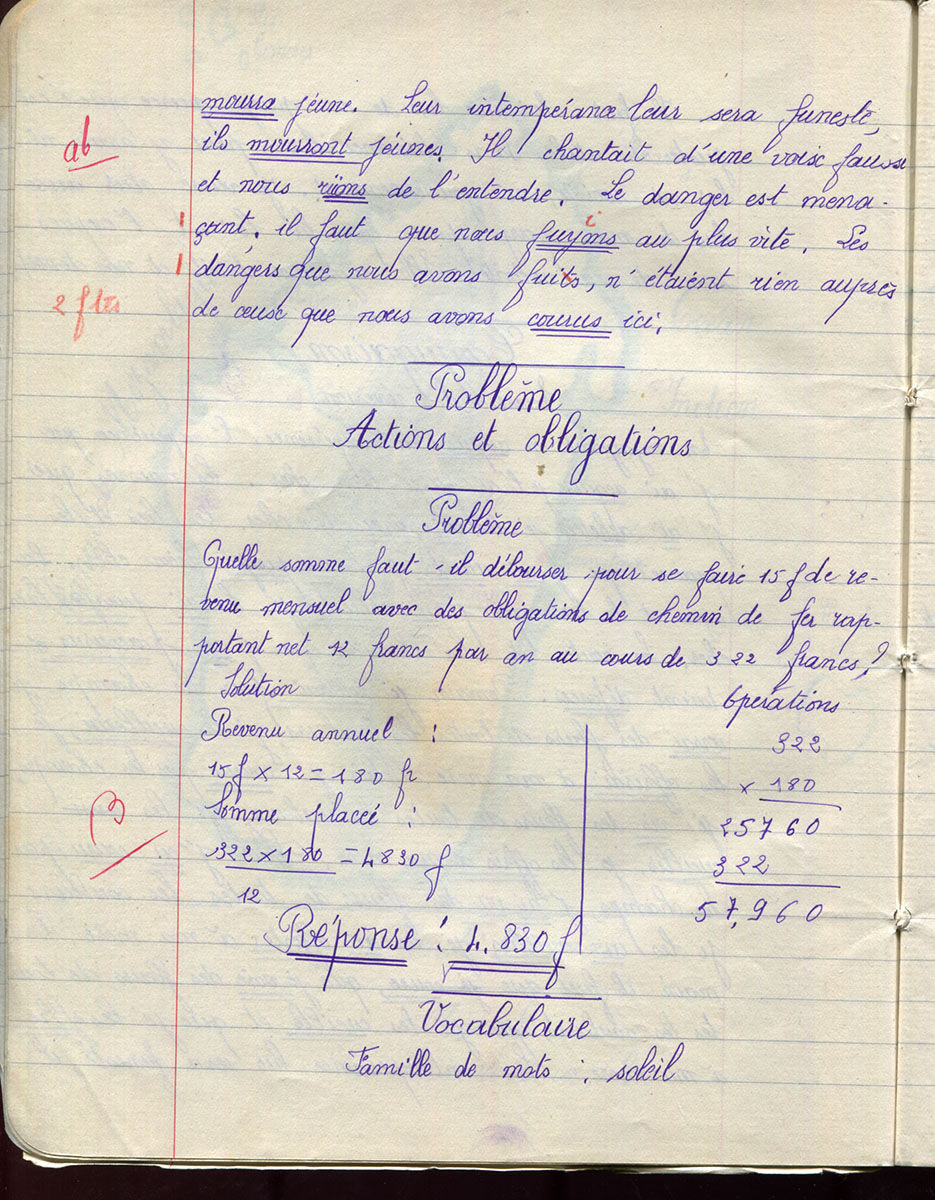 mourra jeune. Leur intempérance leur sera funeste,
ab
ils mourront jeunes. Il chantait d'une voix fausse
et nous riions de l'entendre. Le danger est mena-
çant, il faut que nous fuyons au plus vite. Les
i
dangers que nous avons fuits, n'étaient rien auprès
2 ftes
de ceux que nous avons courus ici.
Problème
Actions et obligations
Problème
Quelle somme faut-il débourser pour se faire 15 f de re-
venu mensuel avec des obligations de chemin de fer rap-
portant net 12 francs par an au cours de 322 francs?
Solution
Opérations
Revenu annuel :
15f × 12 = 180 fr
Somme placée :
322 × 180 = 4830 f
12
322
× 180
25760
322
57,960
B
Réponse : 4.830 f
Vocabulaire
Famille de mots : soleil